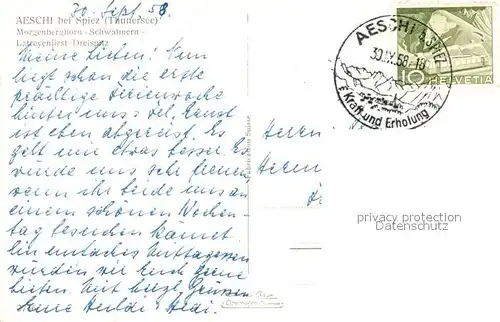 30. Sept. 58.
AESCHI bei Spiez (Thunersee)
Morgenberghorn - Schwalmern -
Latreyenfirst - Dreispitz
Meine Lieben! Nun
liegt schon die erste
prächtige Ferienwoche
hinter uns u.
ist eben abgereist. Es
geht mir etwas besser. Es
würde uns sehr freuen
wenn ihr beide uns an
einem schönen Wochen-
tag besuchen kämet
ein einfaches Mittagessen
würden wir Euch gerne
bieten. Mit herzl. Grüssen
Eure Huldi & Hedi.
AESCHI b. SPIEZ
30.IX.58-18
Kraft und Erholung
10 HELVETIA
Herrn
Herm
privacy protection
DATAPROTECTION